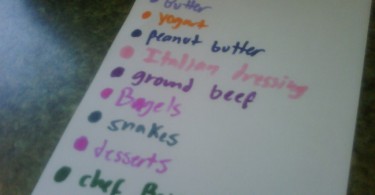 butter
yogurt
peanut butter
Italian dressing
ground beef
Bagels
snakes
desserts
chef